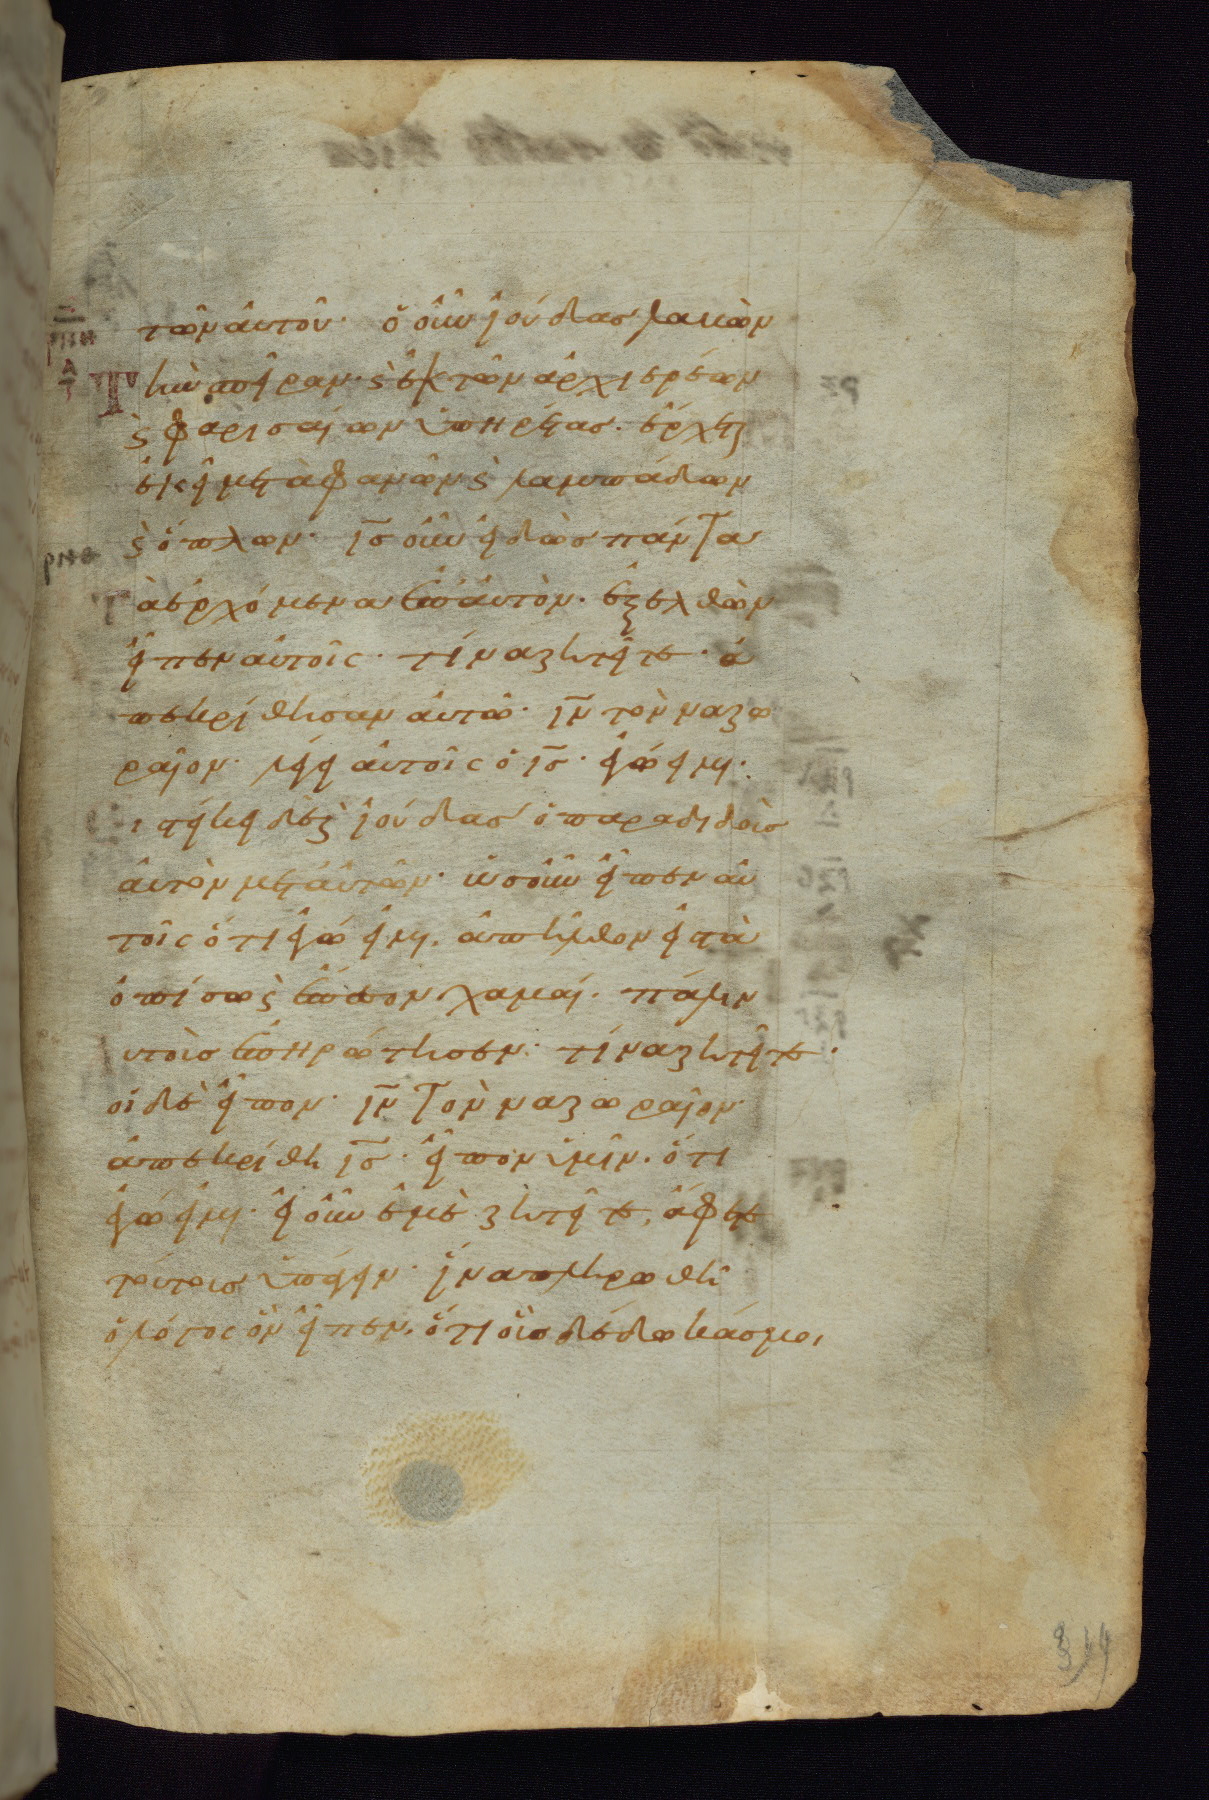 τῶν αὐτοῦ· ὁ οὖν ἰούδας λαβὼν
τὴν σπεῖραν· ϗ ἐκ τῶν ἀρχιερέων
ϗ φαρισαίων ὑπηρέτας· ἔρχεται
ἐκεῖ μετὰ φανῶν ϗ λαμπάδων
ϗ ὅπλων· ις οὖν εἰδὼς πάντα
τὰ ἐρχόμενα ἐπ αὐτὸν· ἐξελθὼν
εἶπεν αὐτοῖς· τίνα ζητεῖτε· ἀ
πεκρίθησαν αὐτῶ· ιν τὸν ναζω
ραῖον· λέγει αὐτοῖς ὁ ις· ἐγώ εἰμι·
ἱστήκει δὲ ϗ ἰούδας ὁ παραδιδοὺς
αὐτὸν μετ αὐτῶν· ὡς οὖν εἶπεν αὐ
τοῖς ὅτι ἐγώ εἰμι. ἀπῆλθον εἰς τὰ
ὀπίσω ϗ ἔπεσον χαμαί· πάλιν
αὐτοὺς ἐπηρώτησεν· τίνα ζητεῖτε·
οἱ δὲ εἶπον· ιν τὸν ναζωραῖον·
ἀπεκρίθη ις· εἶπον ὑμῖν· ὅτι
ἐγώ εἰμι· εἰ οὖν ἐμὲ ζητεῖτε, ἄφετε
τούτους ὑπάγειν· ἵνα πληρωθῆ
ὁ λόγος ὃν εἶπεν. ὅτι οὓς δέδωκάς μοι